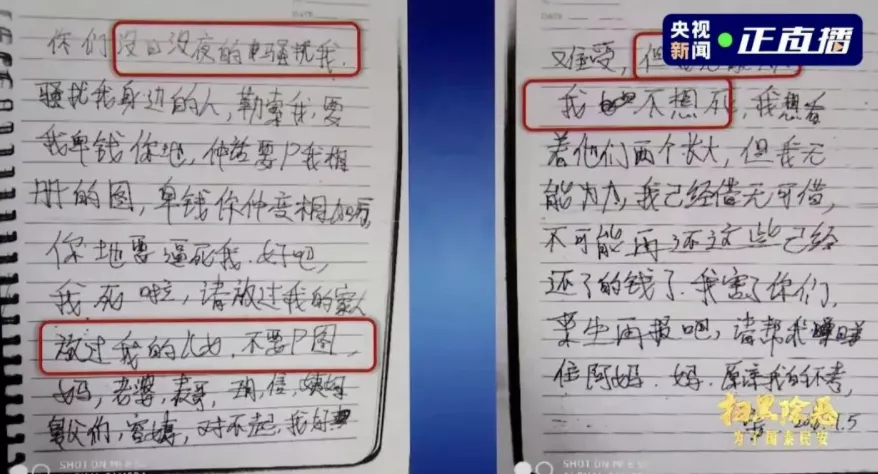 你们没日没夜的骚扰我,
骚扰我身边的人,勒索我,要
我卑钱你地,仲话要P我相
册的图,卑钱你仲变相
你地要逼死我.好吧,
我死啦,请放过我的家人
放过我的儿女,不要P图,
妈,老婆,表哥,
舅父们, 对不起,我好
难受,但
我 不想死,我想看
着他们两个长大,但我无
能为力,我已经借无可借,
不可能再还这些已经
还了的钱了.我害了你们,
来生再报吧,请帮我
住阿妈.妈.原谅我的不孝,
央视新闻 正直播
扫黑除恶
为了国泰民安
SHOT ON MI
SHOT ON MI